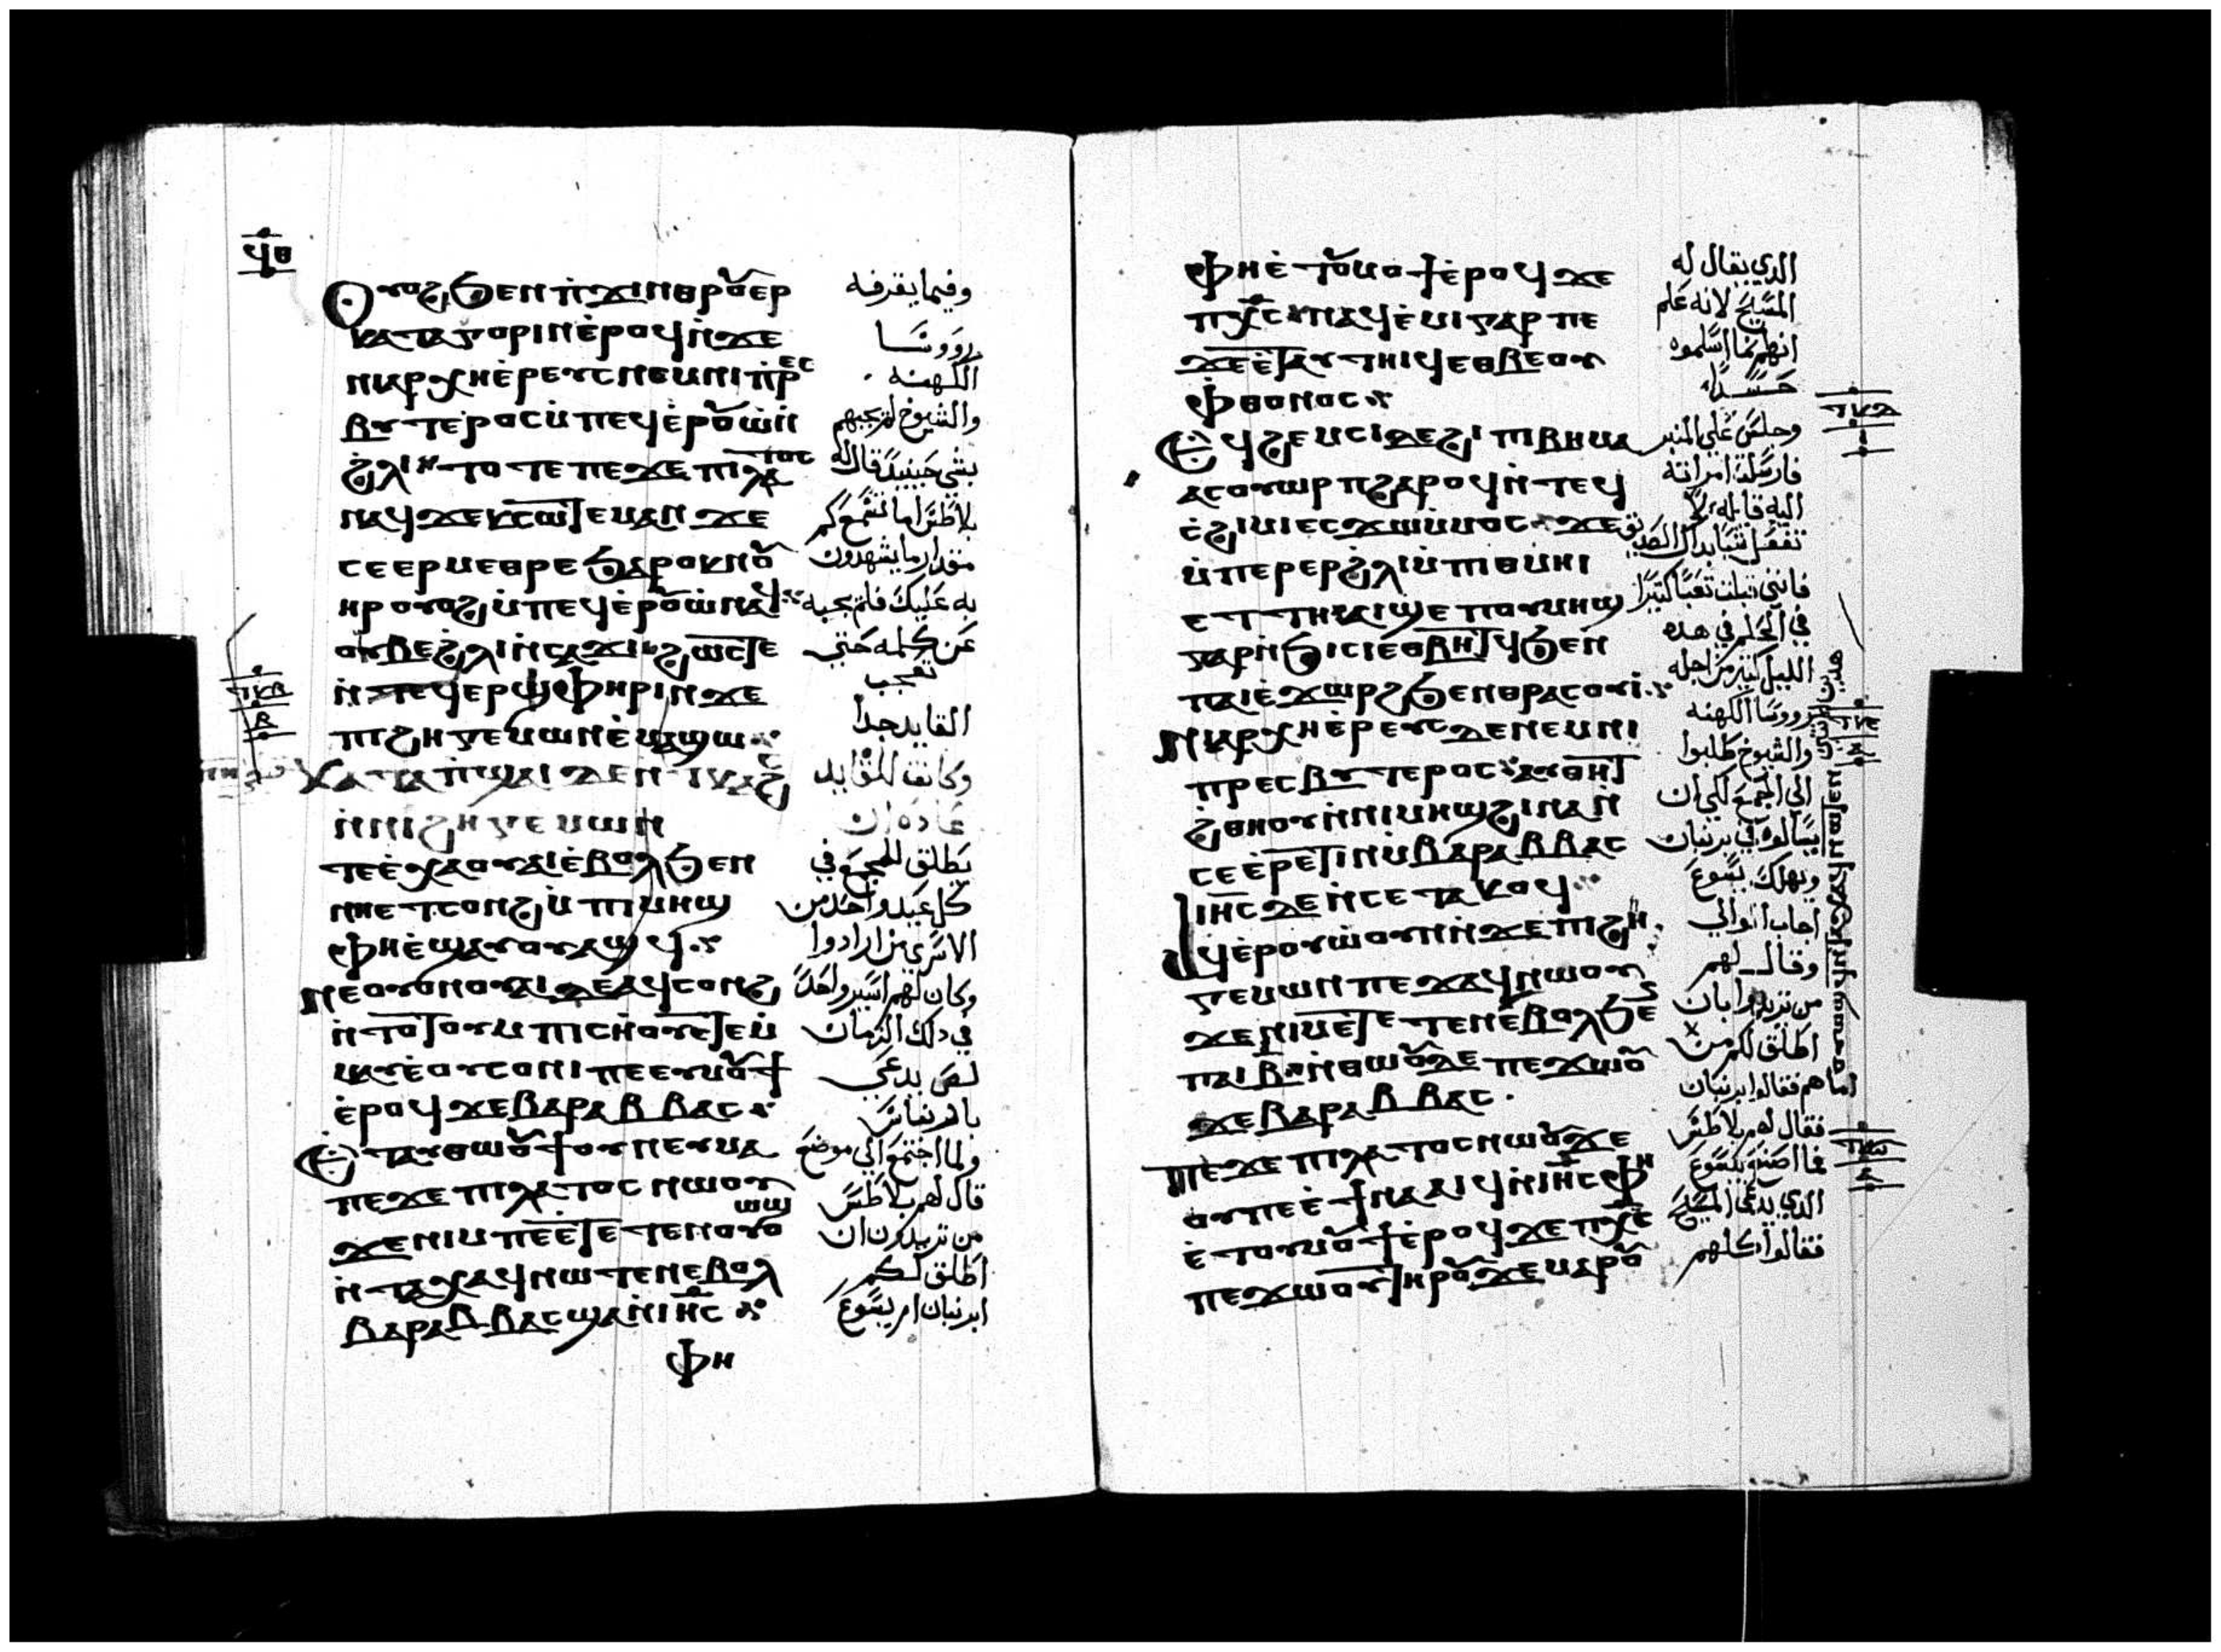 ϥⲑ
Ⲟⲩⲟϩ ϧⲉⲛ ⲡ̀ϫⲓⲛⲑⲣⲟⲩⲉⲣ
ⲕⲁⲧⲁⲅⲟⲣⲓⲛ ⲉ̀ⲣⲟϥ ⲛ̀ϫⲉ
ⲛⲓⲁⲣⲭⲏⲉ̀ⲣⲉⲩⲥ ⲛⲉⲙ ⲛⲓⲡ̀ⲣⲉⲥ
ⲃⲩⲧⲉⲣⲟⲥ ⲙ̀ⲡⲉϥⲉ̀ⲣⲟⲩⲱ̀ ⲛ̀
ϩ̀ⲗⲓ ⲧⲟⲧⲉ ⲡⲉϫⲉ ⲡⲓⲗⲁⲧⲟⲥ
ⲛⲁϥ ϫⲉ ⲕⲥⲱⲧⲉⲙ ⲁⲛ ϫⲉ
ⲥⲉⲉⲣⲙⲉⲑⲣⲉ ϧⲁⲣⲟⲕ ⲛⲟⲩ
ⲏⲣ ⲟⲩⲟϩ ⲙ̀ⲡⲉϥⲉ̀ⲣⲟⲩⲱ̀ ⲛⲁϥ
ⲟⲩⲃⲉ ϩ̀ⲗⲓ ⲛ̀ⲥⲁϫⲓ ϩⲱⲥⲧⲉ
ⲛ̀ⲧⲉϥⲉⲣϣⲫⲏⲣⲓ ⲛ̀ϫⲉ
ⲡⲓϩⲏⲅⲉⲙⲱⲛ ⲉ̀ⲙⲁϣⲱ
ⲕⲁⲧⲁ ⲡ̀ϣⲁⲓ ⲇⲉ ⲛⲉ ⲧⲕⲁϩⲥ
ⲙ̀ⲡⲓϩⲏⲅⲉⲙⲱⲛ
ⲧⲉ ⲉ̀ⲭⲁ ⲟⲩⲁⲓ ⲉ̀ⲃⲟⲗ ϧⲉⲛ
ⲛⲏⲉⲧⲥⲟⲛϩ ⲙ̀ⲡⲓⲙⲏϣ
ⲫⲏ ⲉ̀ϣⲁⲩⲟⲩⲁϣϥ
ⲛⲉ ⲟⲩⲟⲛ ⲟⲩⲁⲓ ⲇⲉ ⲁϥⲥⲟⲛϩ
ⲛ̀ⲧⲟⲧⲟⲩ ⲙ̀ⲡⲓⲥⲏⲟⲩ ⲉⲧⲉⲙ̀
ⲙⲁⲩ ⲉ̀ⲟⲩⲥⲟⲛⲓ ⲡⲉ ⲉⲩⲙⲟⲩϯ
ⲉ̀ⲣⲟϥ ϫⲉ ⲃⲁⲣⲁⲃⲃⲁⲥ
Ⲉ̀ⲧⲁⲩⲑⲱⲟⲩϯ ⲟⲩⲛ ⲉⲩⲙⲁ
ⲡⲉϫⲉ ⲡⲓⲗⲁⲧⲟⲥ ⲛⲱⲟⲩ
ϫⲉ ⲛⲓⲙ ⲡⲉ ⲉ̀ⲧⲉⲧⲉⲛⲟⲩⲱϣ
ⲛ̀ⲧⲁⲭⲁϥ ⲛⲱⲧⲉⲛ ⲉⲃⲟⲗ
ⲃⲁⲣⲁⲃⲃⲁⲥ ϣⲁⲛ ⲓⲏⲥ
ⲫⲏ
وفيما يقرفه
رووسا
الكهنه
والشيوخ لم يجيبهم
بشي حينيد قال له
بلاطس اما تسمع كم
مقدار ما يشهدون
به عليك فلم يجبه
عن كلمه حتي
تعجب
القايد جدا
وكانت للقايد
عاده ان
يطلق للجمع في
كل عيد واحد من
الاسري من ارادوا
وكان لهم اسير واحدا
في دلك الزمان
لص يدعي
بارنباس
ولما اجتمع الي موضع
قال لهم بلاطس
من تريدون ان
اطلق لكم
ابرنبان ام يسوع
ⲫⲏ ⲉ̀ⲧⲟⲩⲙⲟϯ ⲉ̀ⲣⲟϥ ϫⲉ
ⲡⲭ̅ⲥ ⲛⲁϥⲉ̀ⲙⲓ ⲅⲁⲣ ⲡⲉ
ϫⲉ ⲉ̀ⲧⲁⲩⲧⲏⲓϥ ⲉⲑⲃⲉ ⲟⲩ
ⲫⲑⲟⲛⲟⲥ
Ⲉϥϩⲉⲙⲥⲓ ⲇⲉ ϩⲓ ⲡⲓⲃⲏⲙⲁ
ⲁⲥⲟⲩⲱⲣⲡ ϩⲁⲣⲟϥ ⲛ̀ⲧⲉϥ
ⲥ̀ϩⲓⲙⲓ ⲉⲥϫⲱ ⲙ̀ⲙⲟⲥ ϫⲉ
ⲙ̀ⲡⲉⲣⲉⲣ ϩ̀ⲗⲓ ⲙ̀ⲡⲓⲑⲙⲏⲓ
ⲉⲧⲧⲏ ⲁⲓϣⲉⲡ ⲟⲩⲙⲏϣ
ⲅⲁⲣ ⲛ̀ϧⲓⲥⲓ ⲉⲑⲃⲏⲧϥ ϧⲉⲛ
ⲡⲁⲓⲉ̀ϫⲱⲣϩ ϧⲉⲛ ⲑⲣⲁⲥⲟⲩⲓ̀
ⲛⲓⲁⲣⲭⲏⲉ̀ⲣⲉⲩⲥ ⲇⲉ ⲛⲉⲙ ⲛⲓ
ⲡⲣⲉⲥⲃⲩⲧⲉⲣⲟⲥ ⲁⲩⲑⲏⲧ
ϩ̀ⲑⲏⲟⲩ ⲛ̀ⲛⲓⲙⲏϣ ϩⲓⲛⲁ ⲛ̀
ⲥⲉⲉ̀ⲣⲉⲧⲓⲛ ⲙ̀ⲃⲁⲣⲁⲃⲃⲁⲥ
ⲓⲏⲥ ⲇⲉ ⲛ̀ⲥⲉⲧⲁⲕⲟϥ
Ⲁϥⲉ̀ⲣⲟⲩⲱ̀ ⲟⲩⲛ ⲛ̀ϫⲉ ⲡⲓϩⲏ
ⲅⲉⲙⲱⲛ ⲡⲉϫⲁϥ ⲛⲱⲟⲩ
ϫⲉ ⲛⲓⲙ ⲉ̀ⲧⲉⲧⲉⲛ
ⲡⲁⲓ ⲃ̅ ⲛ̀ⲑⲱⲟⲩ ⲇⲉ ⲡⲉϫⲱⲟⲩ
ϫⲉ ⲃⲁⲣⲁⲃⲃⲁⲥ
ⲡⲉϫⲉ ⲡⲓⲗⲁⲧⲟⲥ ⲛⲱⲟⲩ ϫⲉ
ⲟⲩ ⲡⲉ ⲉ̀ϯⲛⲁⲁⲓϥ ⲛ̀ⲓⲏⲥ ⲫⲏ
ⲉ̀ⲧⲟⲩⲙⲟⲩϯ ⲉ̀ⲣⲟϥ ϫⲉ ⲡⲭ̅ⲥ
ⲡⲉϫⲱⲟⲩ ⲧⲏⲣⲟⲩ ϫⲉ ⲙⲁⲣⲟⲩ
الدي يقال له
المسيح لانه علم
انهم انما اسلموه
حسدا
وجلس علي المنبر
فارسلت امراته
اليه قايله لا
تفعل شيا بداك الصديق
فانني قبلت تعبا كتيرا
في الحلم في هده
الليل كتير من اجله
رووسا الكهنه
والشيوخ طلبوا
الي الجمع لكي ان
يسالوه في برنبان
ويهلك يسوع
اجاب الوالي
وقال لهم
من تريدوا بان
اطلق لكم من
اما هم فقالوا ابرنبان
فقال لهم بلاطس
فما اصنع بيسوع
الدي يدعي المسيح
فقالوا كلهم